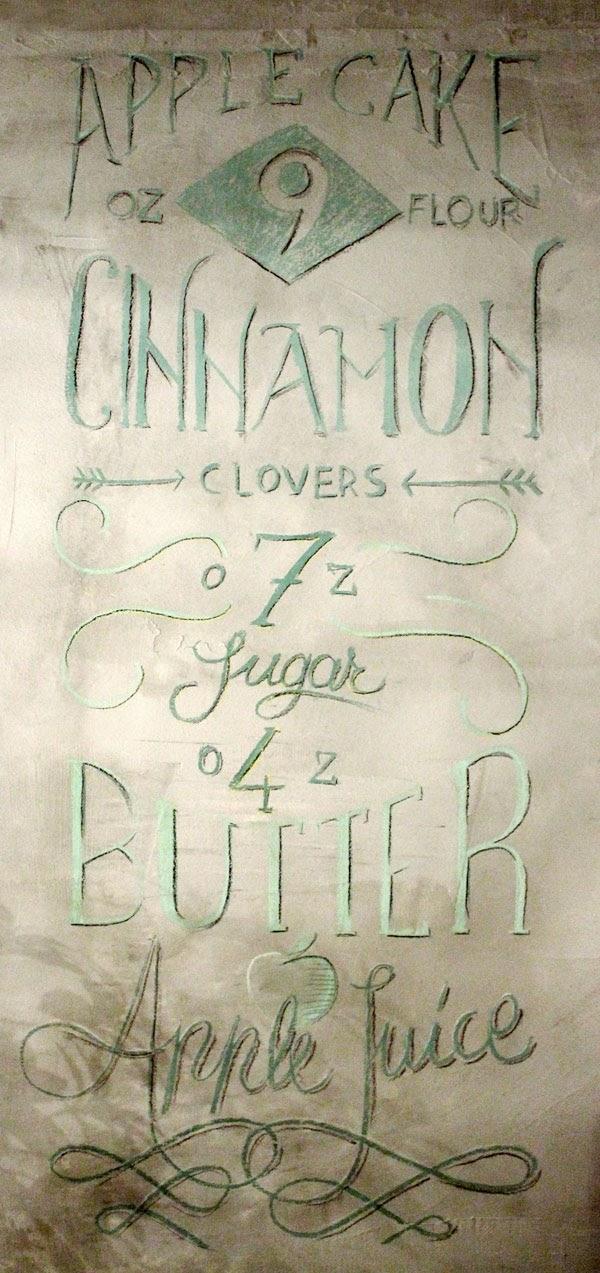 APPLE CAKE
OZ 9 FLOUR
CINNAMON
CLOVERS
O 7 Z
Sugar
O 4 Z
BUTTER
Apple Juice